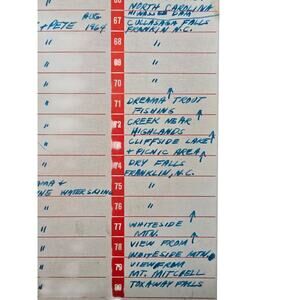 NORTH CAROLINA
HIWASSEE DAM
AUG
67 CULLASAGA FALLS
+ PETE 1964 FRANKLIN N.C.
68
" "
69
" "
70
" "
71 DREAMA TROUT
" FISHING
72 CREEK NEAR
" HIGHLANDS
CLIFFSIDE LAKE
" + PICNIC AREA
74 DRY FALLS
" FRANKLIN, N.C.
AMA +
75 "
NE WATERSKIING
76 "
"
77 WHITESIDE
" MTN.
78 VIEW FROM
" WHITESIDE MTN.
79 VIEW FROM
" MT. MITCHELL
80 TOXAWAY FALLS
"